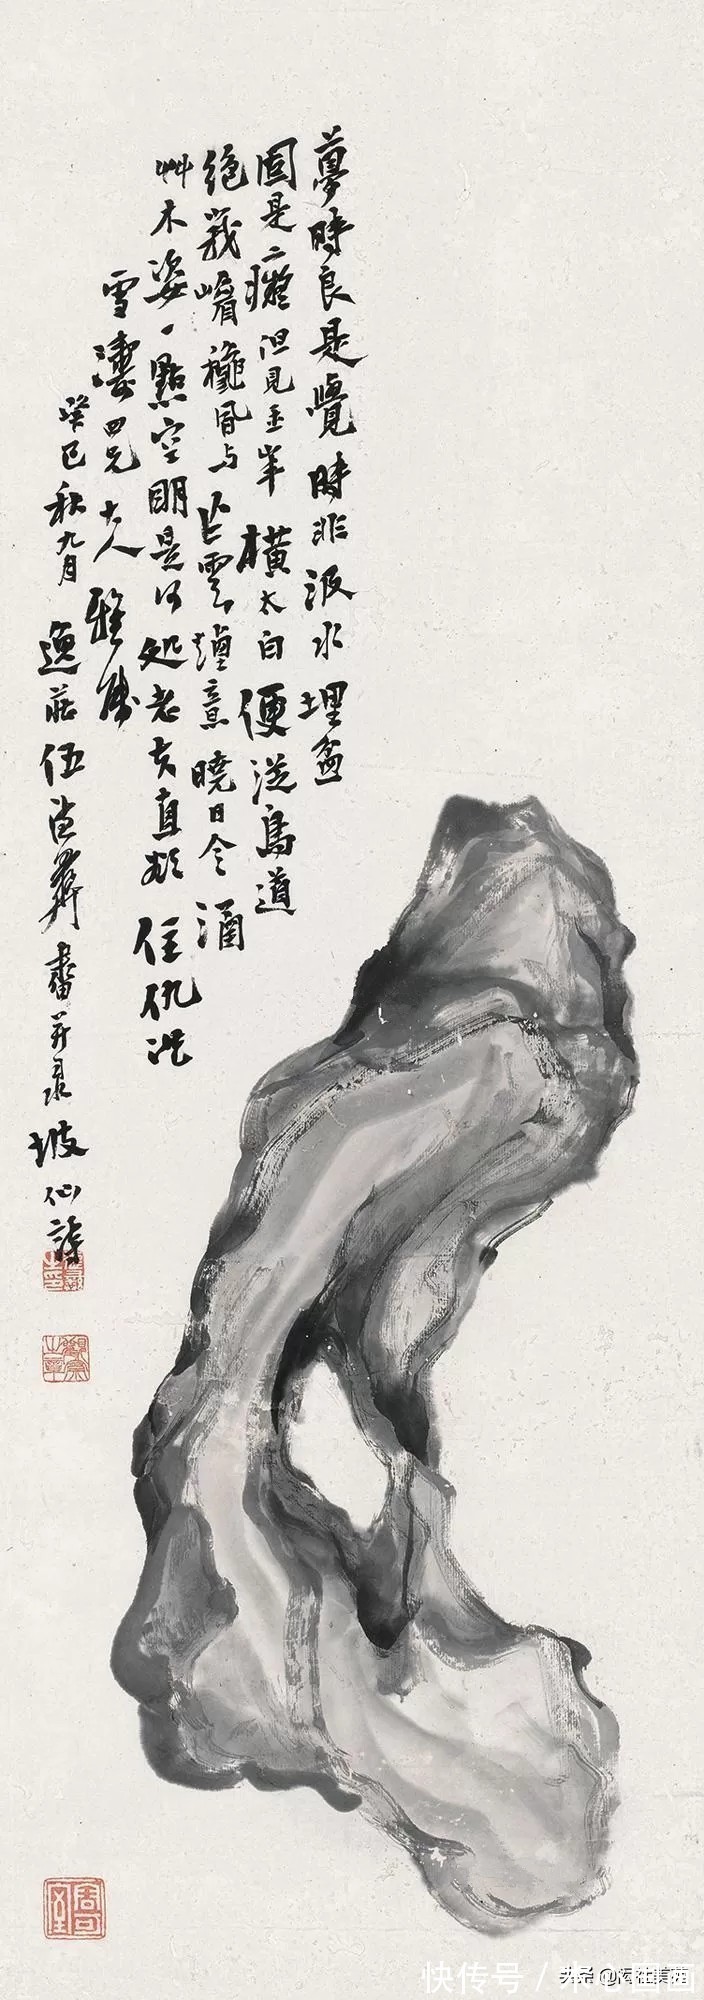 夢時良是覺時非汲水埋盆
固是癡但見玉峯橫太白便從鳥道
絕峩嵋穐風与作雲煙意曉日令涵
艸木姿一點空明是何処老夫真欲住仇池
雪濤四兄大人雅屬
癸巳秋九月逸莊伍德彝畫并录坡仙詩
快传号 /
头条 @